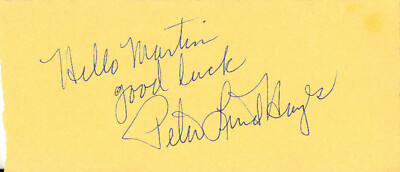 Hello Martin
good luck
Peter Lind Hayes